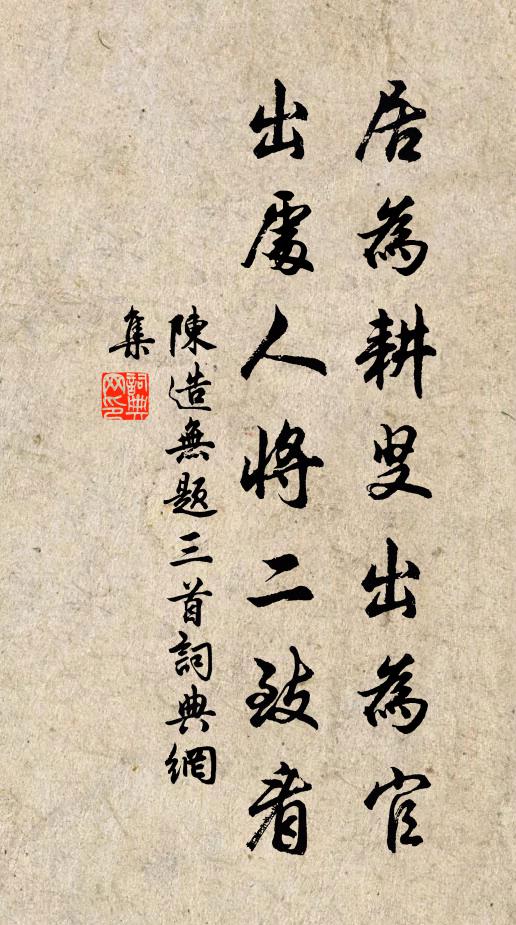 居為耕叟出為官
出處人將二致看
陳造無題三首詞典網
集
詞典網印